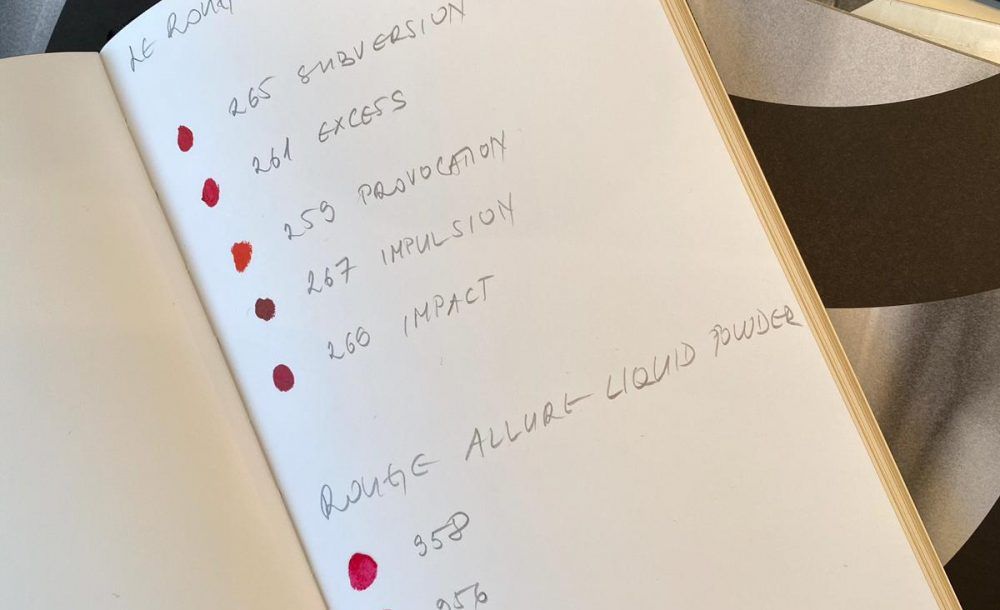 LE ROUG
265 SUBVERSION
261 EXCESS
259 PROVOCATION
267 IMPULSION
269 IMPACT
ROUGE ALLURE LIQUID POWDER
958
956